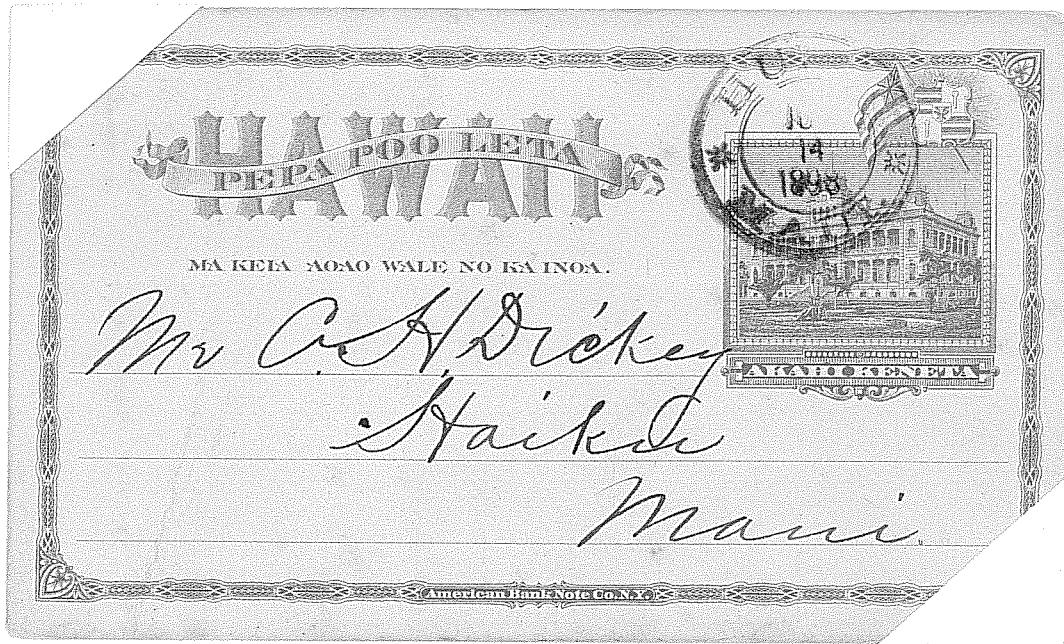 HAWAII
PEPA POO LETA
MA KEIA AOAO WALE NO KA INOA.
14
MAUI
AKAHI KENETA
Mr C. H. Dickey
Haiku
Maui.
American Bank Note Co. N.Y.